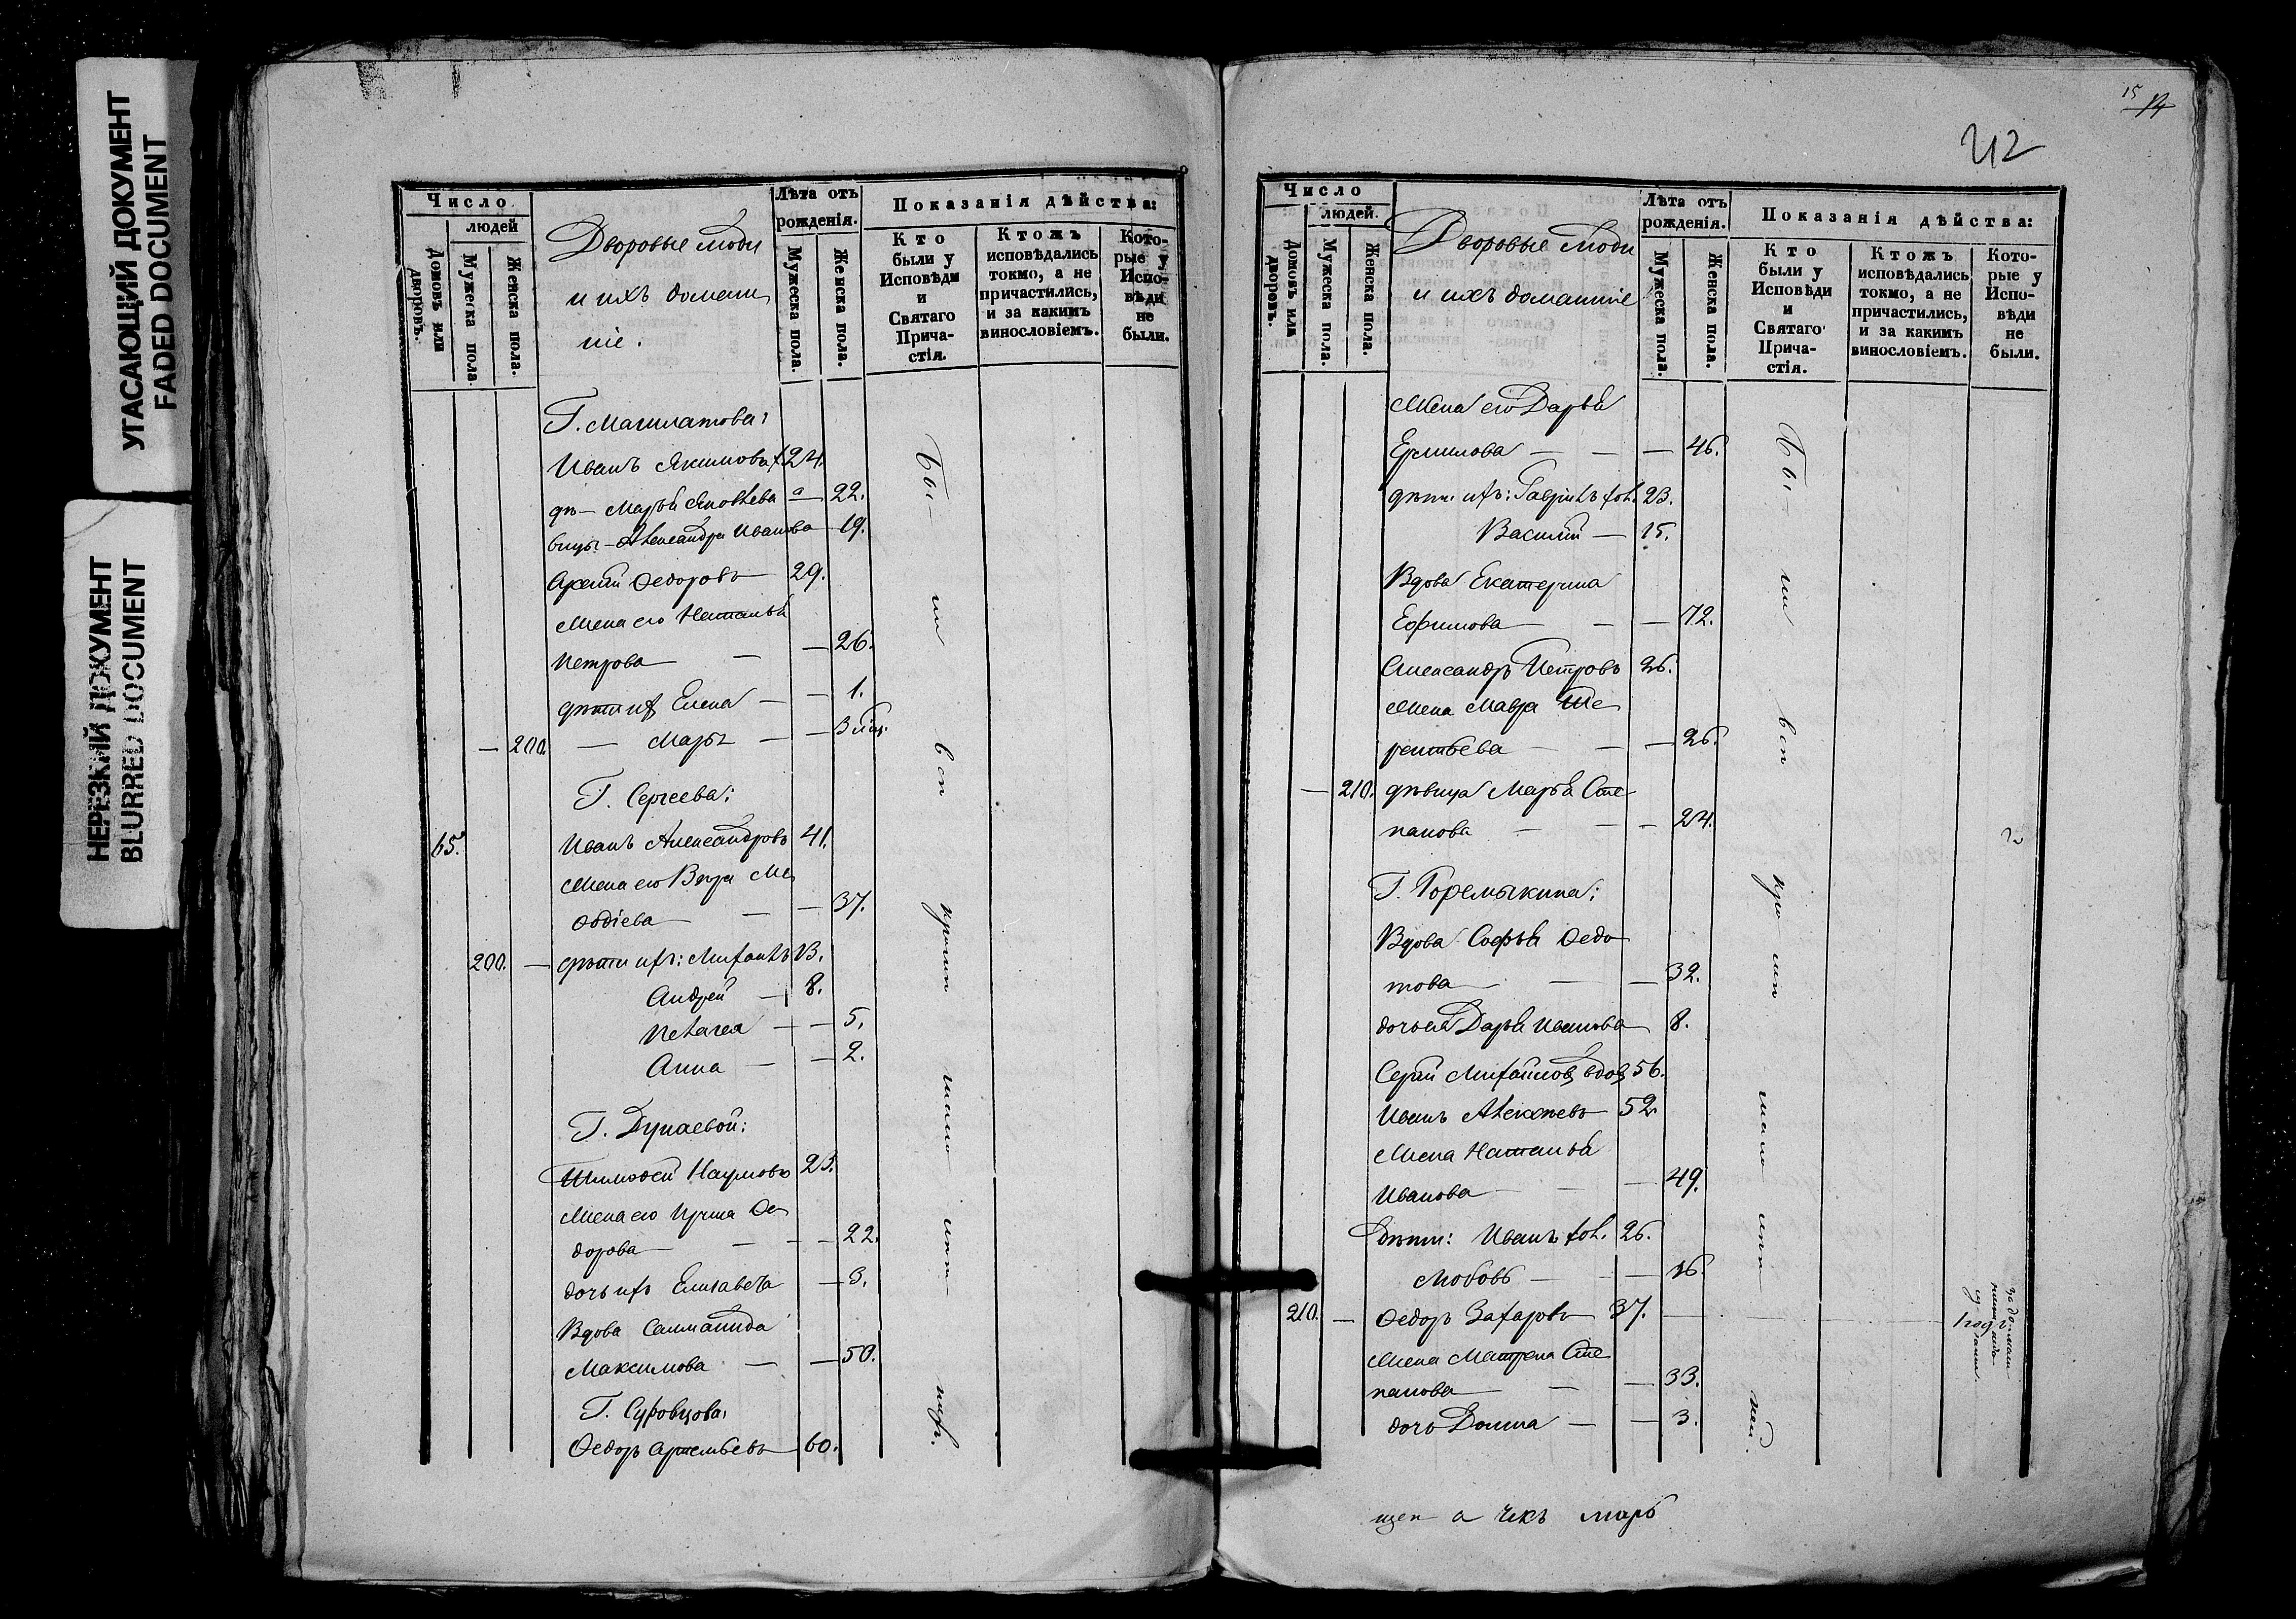 УГАСАЮЩИЙ ДОКУМЕНТ
FADED DOCUMENT
НЕРЕЗКИЙ ДОКУМЕНТ
BLURRED DOCUMENT
Число
людей
Домовъ или дворовъ.
Мужеска пола.
Женска пола.
Дворовые люди
и ихъ домаш
ніе.
Лѣта отъ рожденія.
Мужеска пола.
Женска пола.
Показанія дѣйства:
Кто были у Исповѣди и Святаго Прича-стія.
Ктожъ исповѣдались токмо, а не причастились, и за какимъ винословіемъ.
Кото-рые у Испо-вѣди не были.
Г.
Иванъ Якимовъ 24.
дѣ— Марья 22.
вицы— Александра Иванова 19.
Федоровъ 29.
Жена его Наталья
Петрова — — 26.
дѣти их Елена — — 1.
— 200. — Марья — — 3
Г. Сергеева:
65. Иванъ Александровъ 41.
Жена его Вѣра Ме
ѳодіева — — 37.
200. — дѣти ихъ: Михаилъ 13.
Андрей — 8.
Пелагея — — 5.
Анна — — 2.
Г. Дунаевой:
Тимоѳей Наумовъ 23.
Жена его Ирина Ѳе
дорова — — 22.
дочь ихъ Елисавета — 3.
Вдова
Максимова — — 50.
Г. Суровцова:
Ѳедоръ Артемьевъ 60.
Бы— ли
15 14
42
Число
людей.
Домовъ или дворовъ.
Мужеска пола.
Женска пола.
Дворовые люди
и ихъ домашніе
Лѣта отъ рожденія.
Мужеска пола.
Женска пола.
Показанія дѣйства:
Кто были у Исповѣди и Святаго Прича-стія.
Ктожъ исповѣдались токмо, а не причастились, и за какимъ винословіемъ.
Кото-рые у Испо-вѣди не были.
Жена его Дарья
Ермилова — — — 46.
дѣти ихъ: Гавріилъ хол. 23.
Василій — 15.
Вдова Екатерина
Ефимова — — — 72.
Александръ Петровъ 36.
Жена Мавра Те
рентьева — — — 26.
— 210. дѣвица Марья Сте
панова — — — 24.
Г. Горемыкина:
Вдова Софья Ѳедо
това — — — 32.
дочь ея Дарья Иванова 8.
Сергій Михайловъ вдов 56.
Иванъ Алексѣевъ 52.
Жена Наталья
Иванова — — 49.
Дѣти: Иванъ хол. 26.
Любовь — — 16.
210. — Ѳедоръ Захаровъ 37. — 1 годъ
Жена Матрена Сте
панова — — 33.
дочь Домна — — 3.
Бы— ли